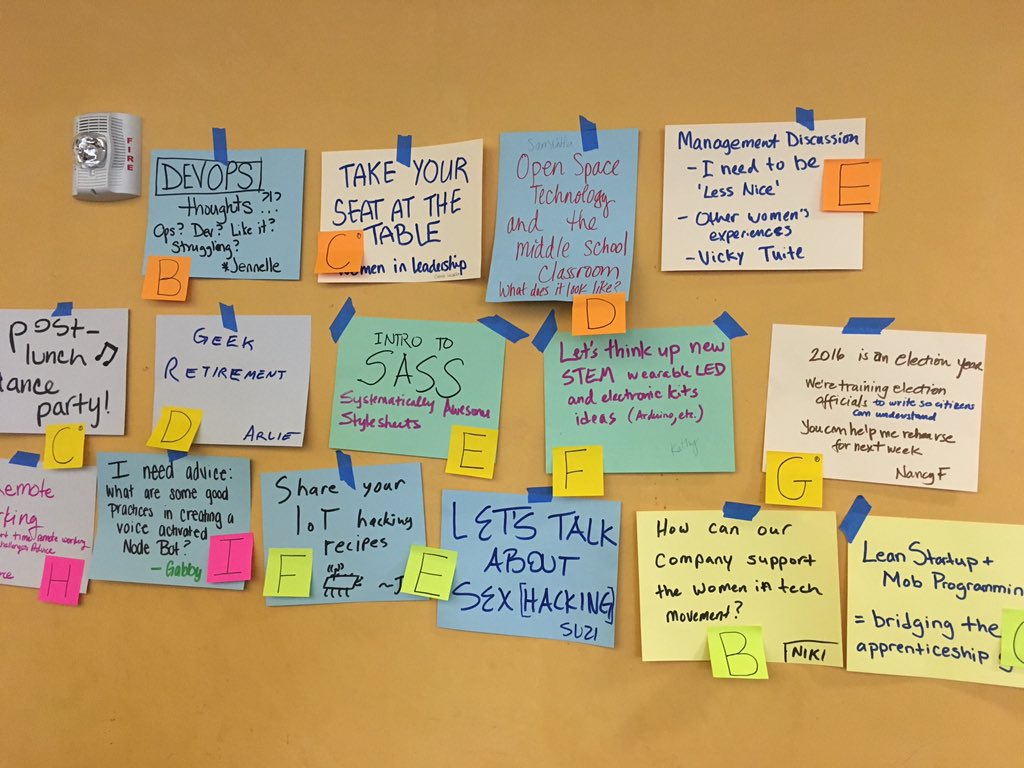 FIRE
DEVOPS
thoughts ?!?
...
Ops? Dev? Like it?
Struggling?
*Jennelle
B
TAKE YOUR
SEAT AT THE
TABLE
women in leadership
C
Samantha
Open Space
Technology
and the
middle school
classroom
What does it look like?
D
Management Discussion
- I need to be
'Less Nice'
- Other women's
experiences
- Vicky Tuite
E
post-
lunch ♫
dance
party!
C
GEEK
RETIREMENT
ARLIE
D
INTRO TO
SASS
Systematically Awesome
Stylesheets
E
Let's think up new
STEM wearable LED
and electronic kits
ideas (Arduino, etc.)
Kathy
F
2016 is an election year
We're training election
officials to write so citizens
can understand
You can help me rehearse
for next week
Nancy F
G
Remote
H
I need advice:
What are some good
practices in creating a
voice activated
Node Bot?
- Gabby
I
Share your
IoT hacking
recipes
~J
F
E
LET'S TALK
ABOUT
SEX [HACKING]
SUZI
How can our
Company support
the women in tech
movement?
NIKI
B
Lean Startup +
Mob Programmin
= bridging the
apprenticeship